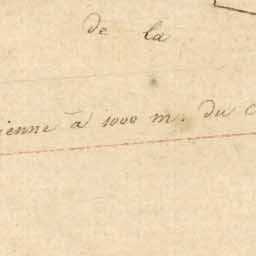 de la
ienne à 1000 m. du C